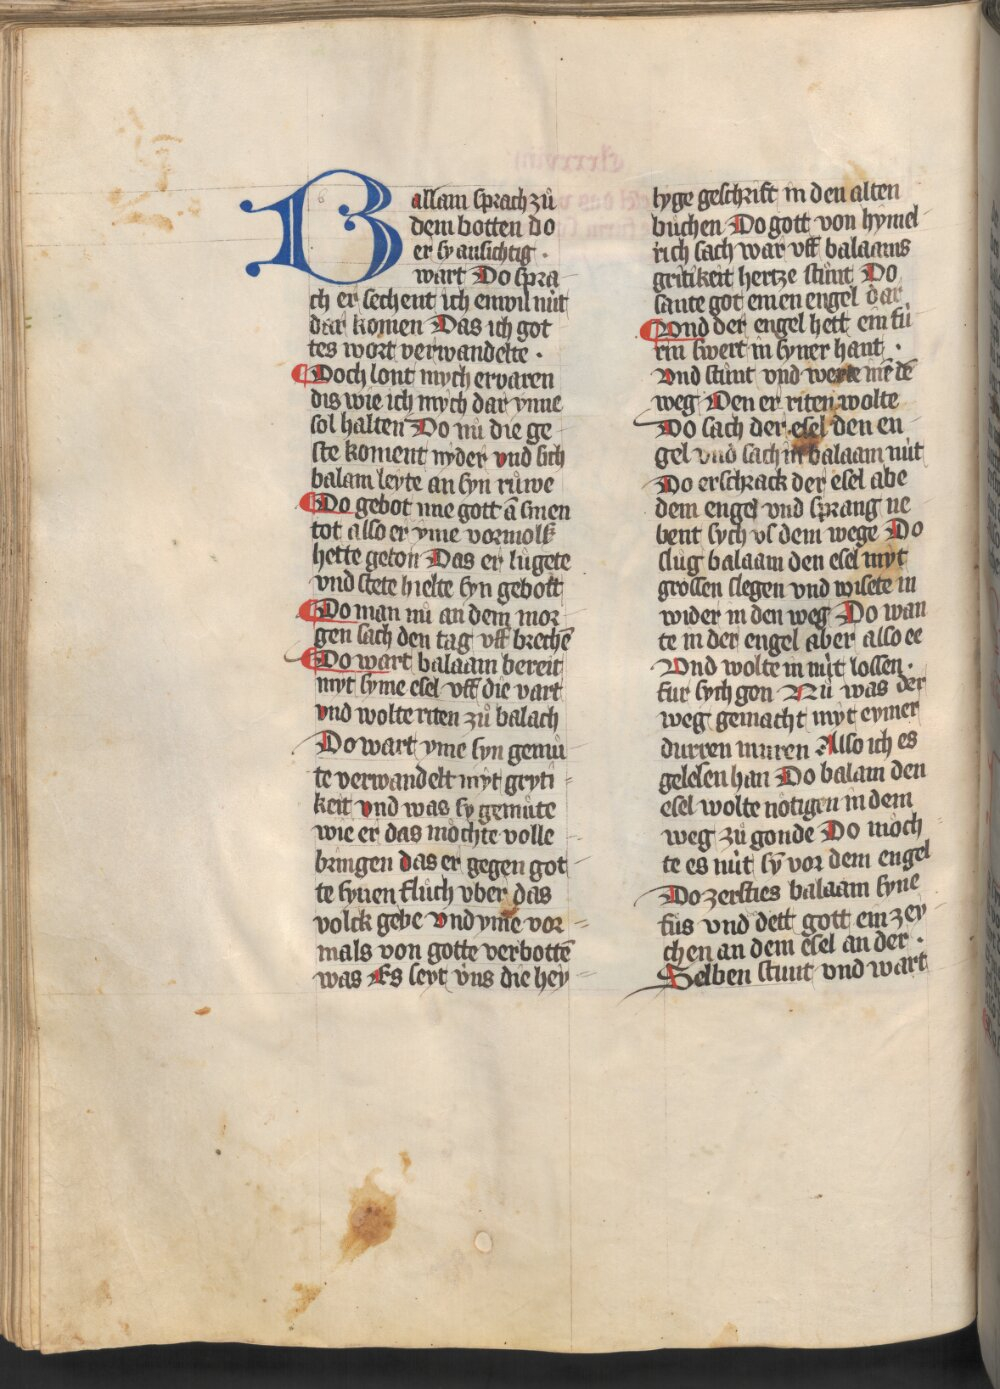 Ballam sprach zuͦ
dem botten do
er sy ansichtig ·
wart Do spra
ch er sechent ich enwil nuͤt
dar komen Das ich got
tes wort verwandelte ·
Doch lont mych ervaren
dis wie ich mych dar ynne
sol halten Do nuͦ die ge
ste koment nyder vnd sich
balam leyte an syn ruͦwe
Do gebot ime gott
tot also er yme vormols
hette geton Das er luͦgete
vnd stete hielte syn gebott
Do man nuͦ an dem mor
gen sach den tag vff breche͂
Do wart balaam bereit
myt syme esel vff die vart
vnd wolte riten zuͦ balach
Do wart yme syn gemuͦ
te verwandelt myt gryti
keit vnd was sy gemuͦte
wie er das moͤchte volle
bringen das er gegen got
te synen fluͦch vber das
volck gebe vnd yme vor
mals von gotte verbotte͂
was Es seyt vns die hey
lyge geschrift in den alten
buͤchen Do gott von hymel
rich sach war vff balaams
gritikeit hertze stuͦnt Do
sante got einen engel dar
Vnd der engel hett ein fuͤ
rin swert in syner hant ·
Vnd stuͦnt vnd werte ime de͂
weg Den er riten wolte
Do sach der esel den en
gel vnd sach in balaam nuͤt
Do erschrack der esel abe
dem engel vnd sprang ne
bent sych vs dem wege Do
sluͦg balaam den esel myt
grossen slegen vnd wisete in
wider in den weg Do wan
te in der engel aber also ee
Vnd wolte in nuͤt lossen ·
fur sych gon Nuͦ was der
weg gemacht myt eyner
durren muren Also ich es
gelesen han Do balam den
esel wolte noͤtigen in dem
weg zuͦ gonde Do moch
te es nuͤt sy͂ vor dem engel
Do zersties balaam syne
fuͤs vnd dett gott ein zey
chen an dem esel an der ·
Selben stunt vnd wart